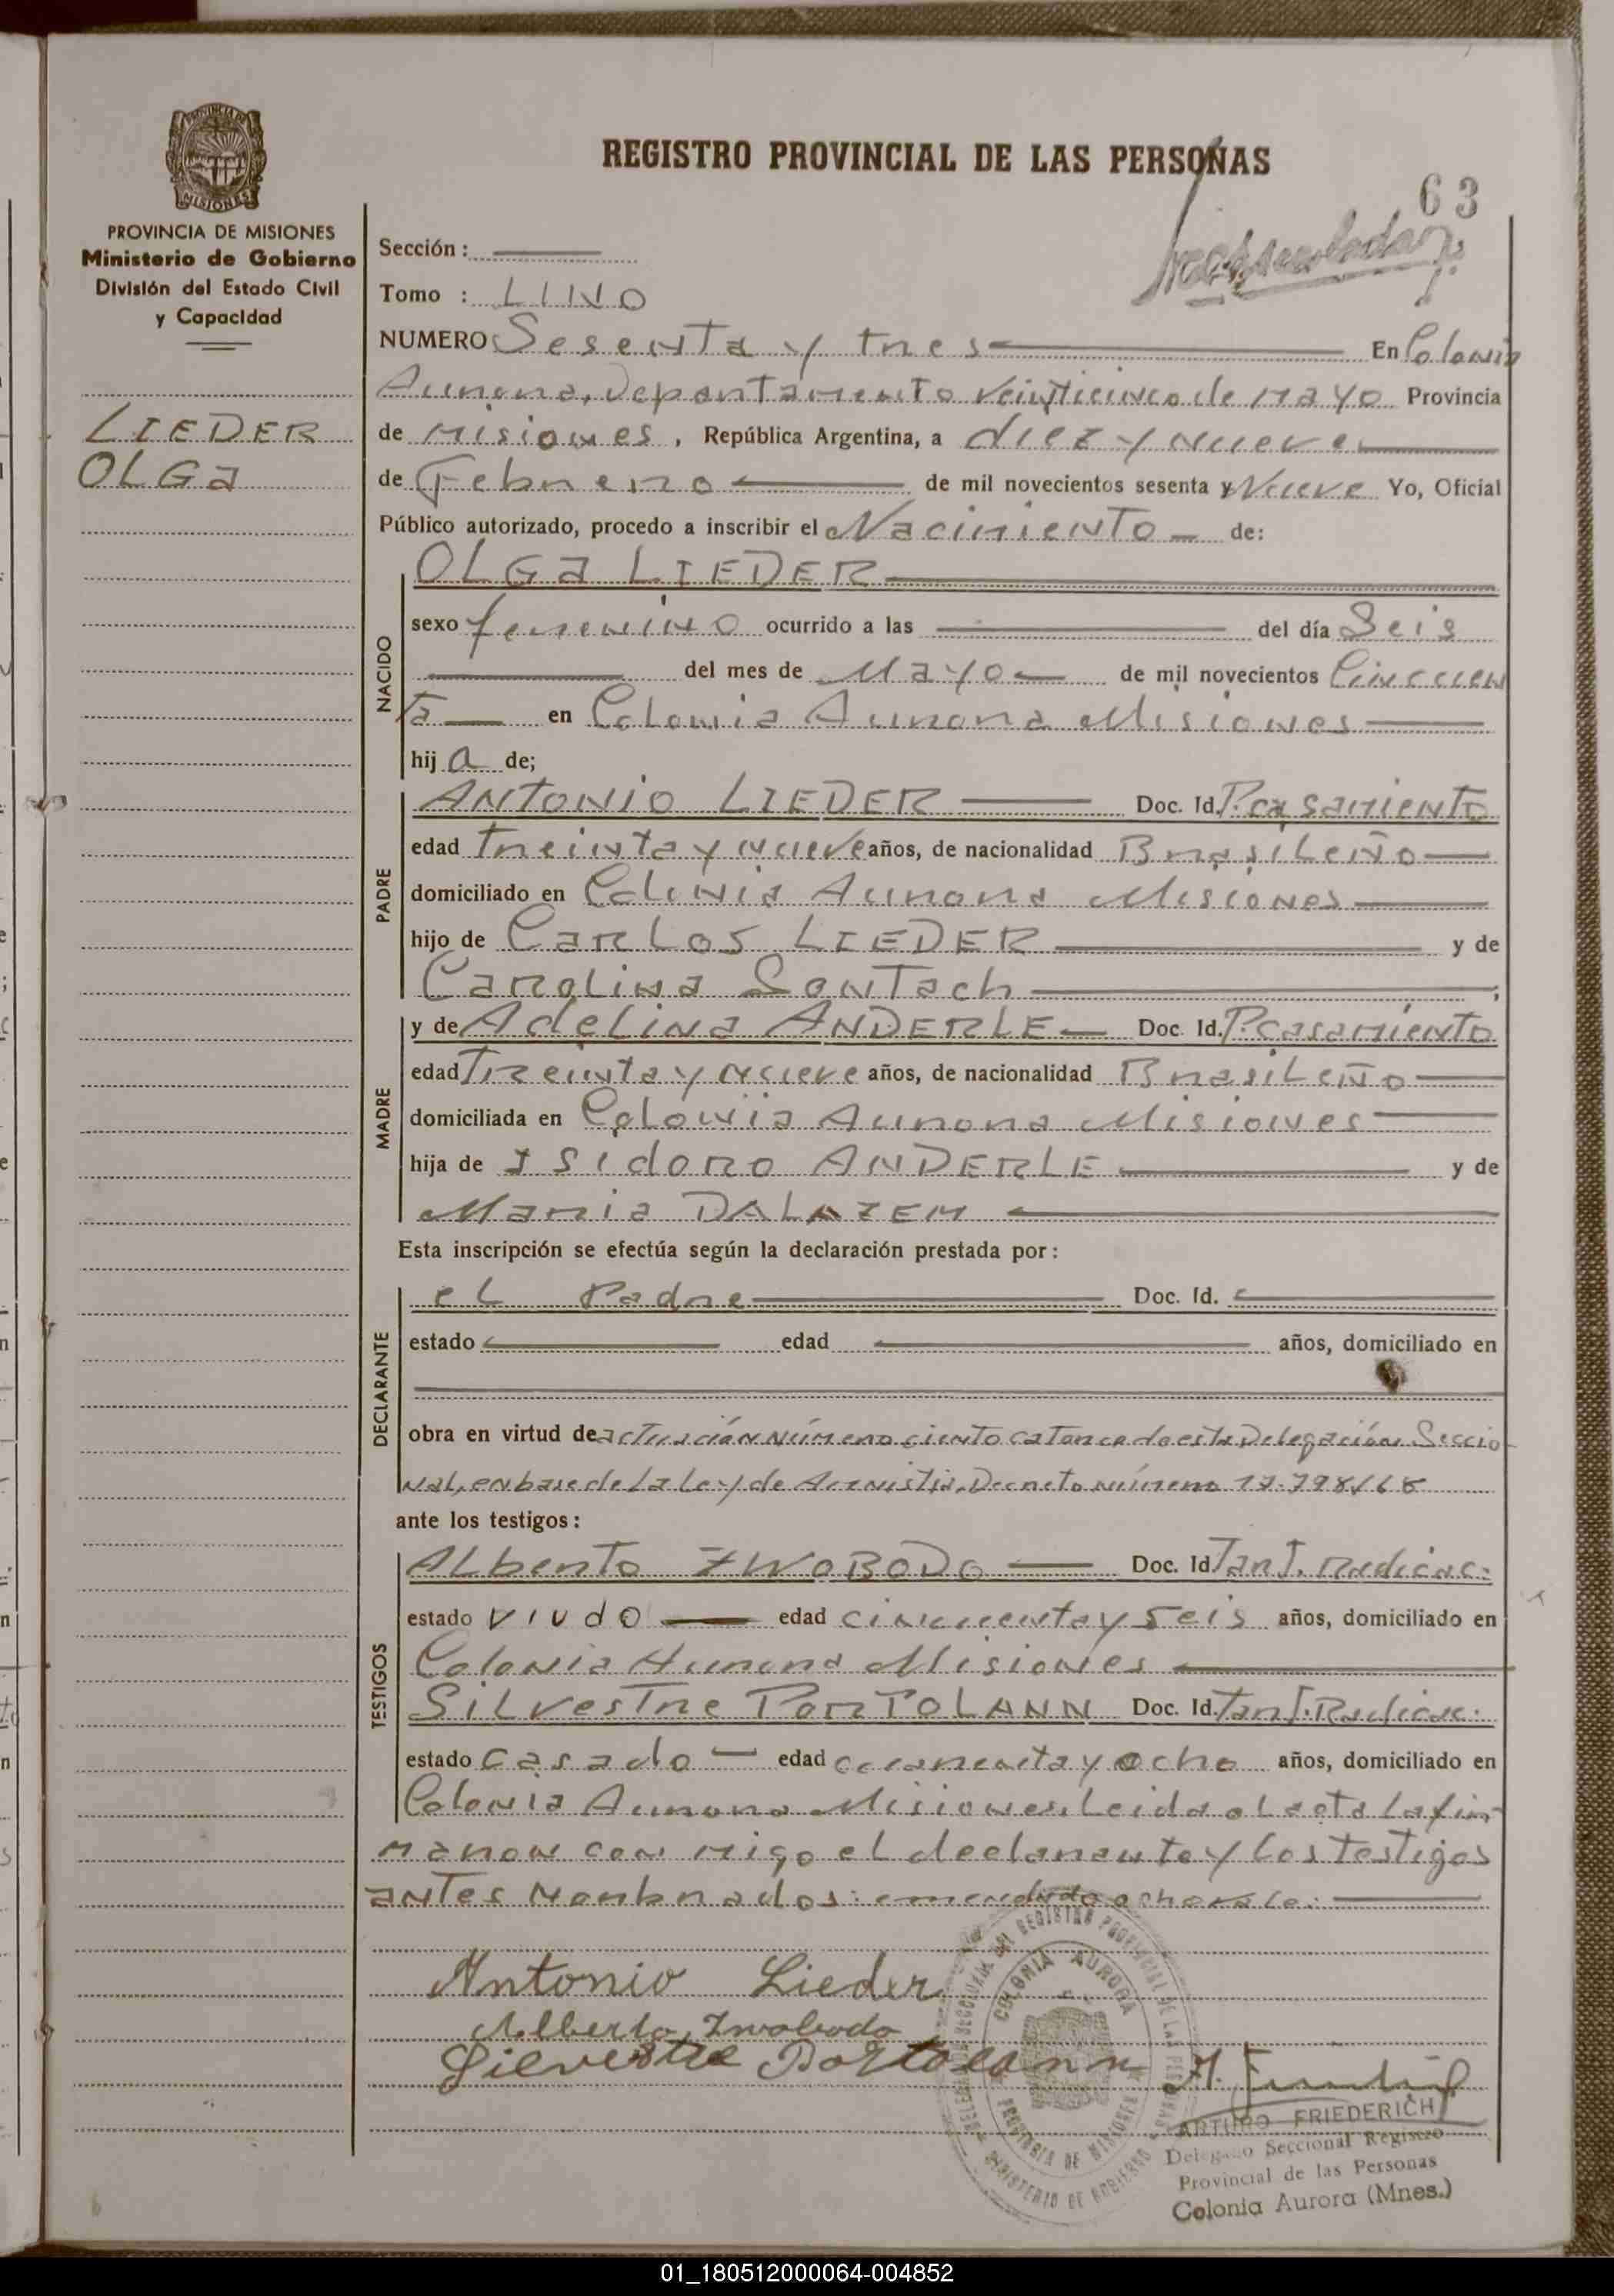 REGISTRO PROVINCIAL DE LAS PERSONAS
63
PROVINCIA DE MISIONES
Ministerio de Gobierno
División del Estado Civil
y Capacidad
LIEDER
OLGA
Sección :
Tomo : UNO
NUMERO Sesenta y tres En Colonia
Aurora, Departamento Veinticinco de Mayo Provincia
de Misiones, República Argentina, a diez y nueve
de Febrero de mil novecientos sesenta y Nueve Yo, Oficial
Público autorizado, procedo a inscribir el Nacimiento de:
NACIDO
OLGA LIEDER
sexo femenino ocurrido a las del día Seis
del mes de Mayo de mil novecientos Cincuen
ta en Colonia Aurora Misiones
hij a de;
PADRE
ANTONIO LIEDER Doc. Id. P. casamiento
edad treinta y nueve años, de nacionalidad Brasileño
domiciliado en Colonia Aurora Misiones
hijo de Carlos LIEDER y de
Carolina Sontach ;
MADRE
y de Adelina ANDERLE Doc. Id. P. casamiento
edad treinta y nueve años, de nacionalidad Brasileño
domiciliada en Colonia Aurora Misiones
hija de Isidoro ANDERLE y de
Maria DALAZEM
Esta inscripción se efectúa según la declaración prestada por:
DECLARANTE
el Padre Doc. Id.
estado edad años, domiciliado en
obra en virtud de actuación Número ciento catorce de esta Delegación Seccio
nal, en base de la Ley de Amnistia, Decreto número 17.798/68
ante los testigos:
TESTIGOS
Alberto ZWOBODO Doc. Id. Tarj. Radicac:
estado viudo edad cincuenta y seis años, domiciliado en
Colonia Aurora Misiones
Silvestre PORTOLANN Doc. Id. Tarj. Radicac:
estado Casado edad cuarenta y ocho años, domiciliado en
Colonia Aurora Misiones. Leida el acta la fir-
maron con migo el declarante y los testigos
antes Nombrados: emendado ocho vale:
Antonio Lieder
Alberto Zwobodo
Silvestre Portolann
DELEGACION SECCIONAL DEL REGISTRO PROVINCIAL DE LAS PERSONAS
COLONIA AURORA
PROVINCIA DE MISIONES
MINISTERIO DE GOBIERNO
ARTURO FRIEDERICH
Delegado Seccional Registro
Provincial de las Personas
Colonia Aurora (Mnes.)
01_180512000064-004852